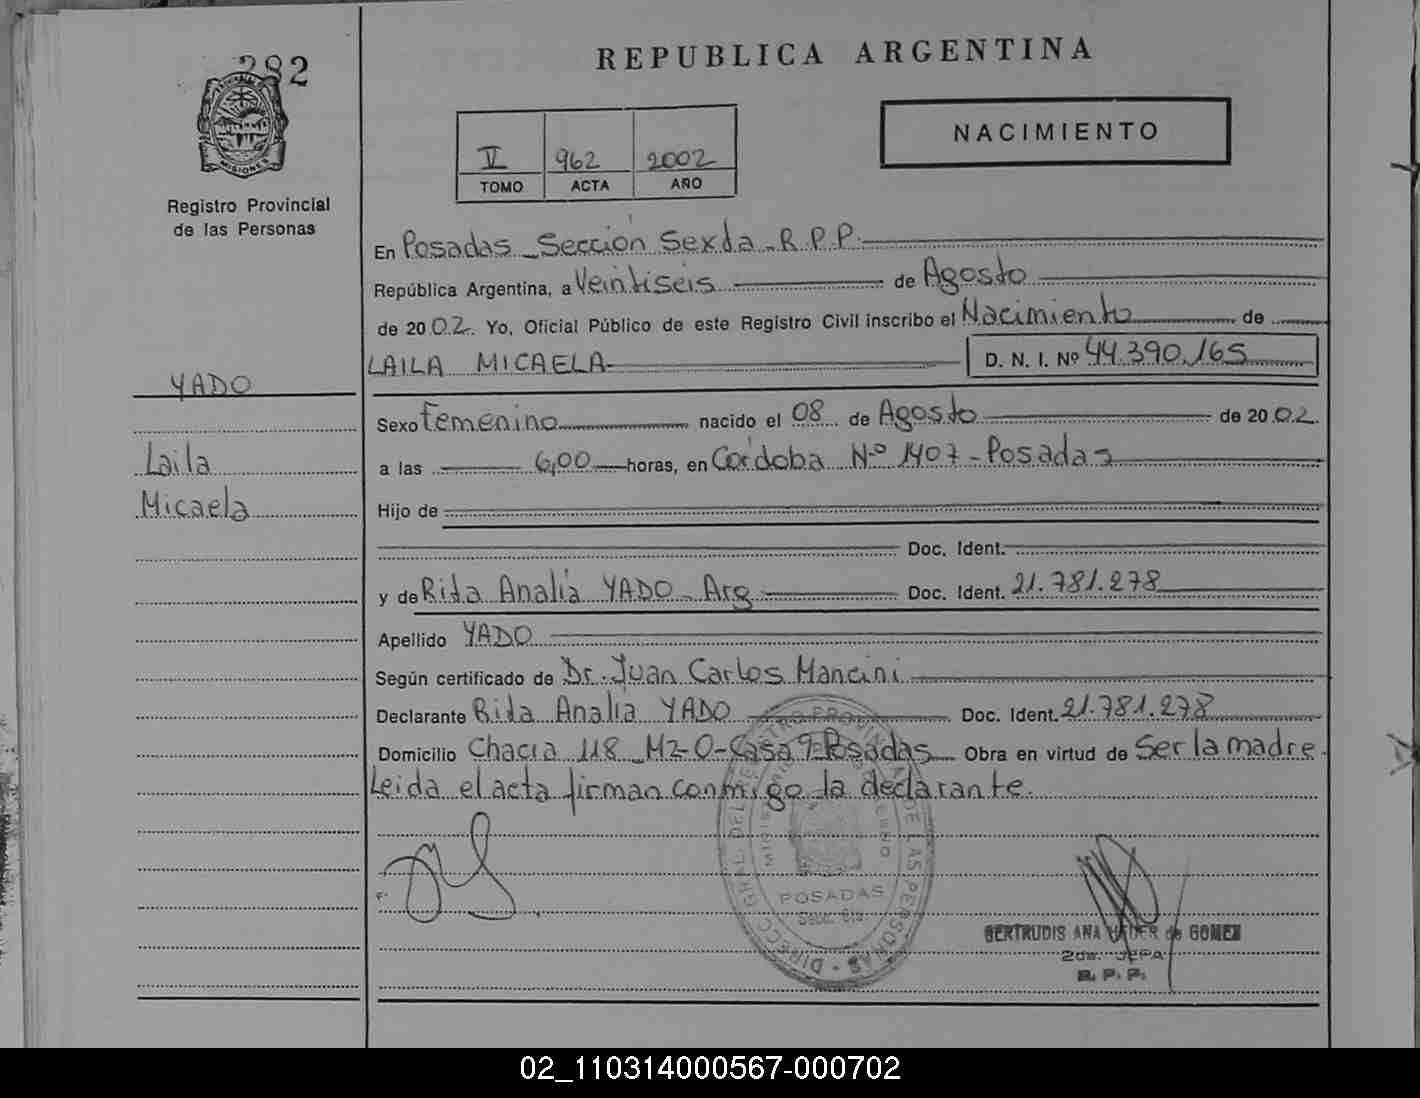 282
MISIONES
Registro Provincial
de las Personas
YADO
Laila
Micaela
REPUBLICA ARGENTINA
V 962 2002
TOMO ACTA AÑO
NACIMIENTO
En Posadas - Sección Sexta - R.P.P.
República Argentina, a Veintiseis de Agosto
de 2002. Yo, Oficial Público de este Registro Civil inscribo el Nacimiento de
LAILA MICAELA D. N. I. Nº 44.390.165
Sexo femenino nacido el 08 de Agosto de 2002.
a las 6,00 horas, en Córdoba Nº 1407 - Posadas
Hijo de
Doc. Ident.
y de Rita Analía YADO - Arg Doc. Ident. 21.781.278
Apellido YADO
Según certificado de Dr. Juan Carlos Mancini
Declarante Rita Analía YADO Doc. Ident. 21.781.278
Domicilio Chacra 118 - Mz-O-Casa 9-Posadas Obra en virtud de Ser la madre.
Leida el acta firman conmigo la declarante.
F.
DIRECC. GRAL. DEL REGISTRO PROVINCIAL DE LAS PERSONAS
POSADAS
Secc. 6ta.
GERTRUDIS ANA DE GOMEZ
2do. JEFA
R. P. P.
02_110314000567-000702